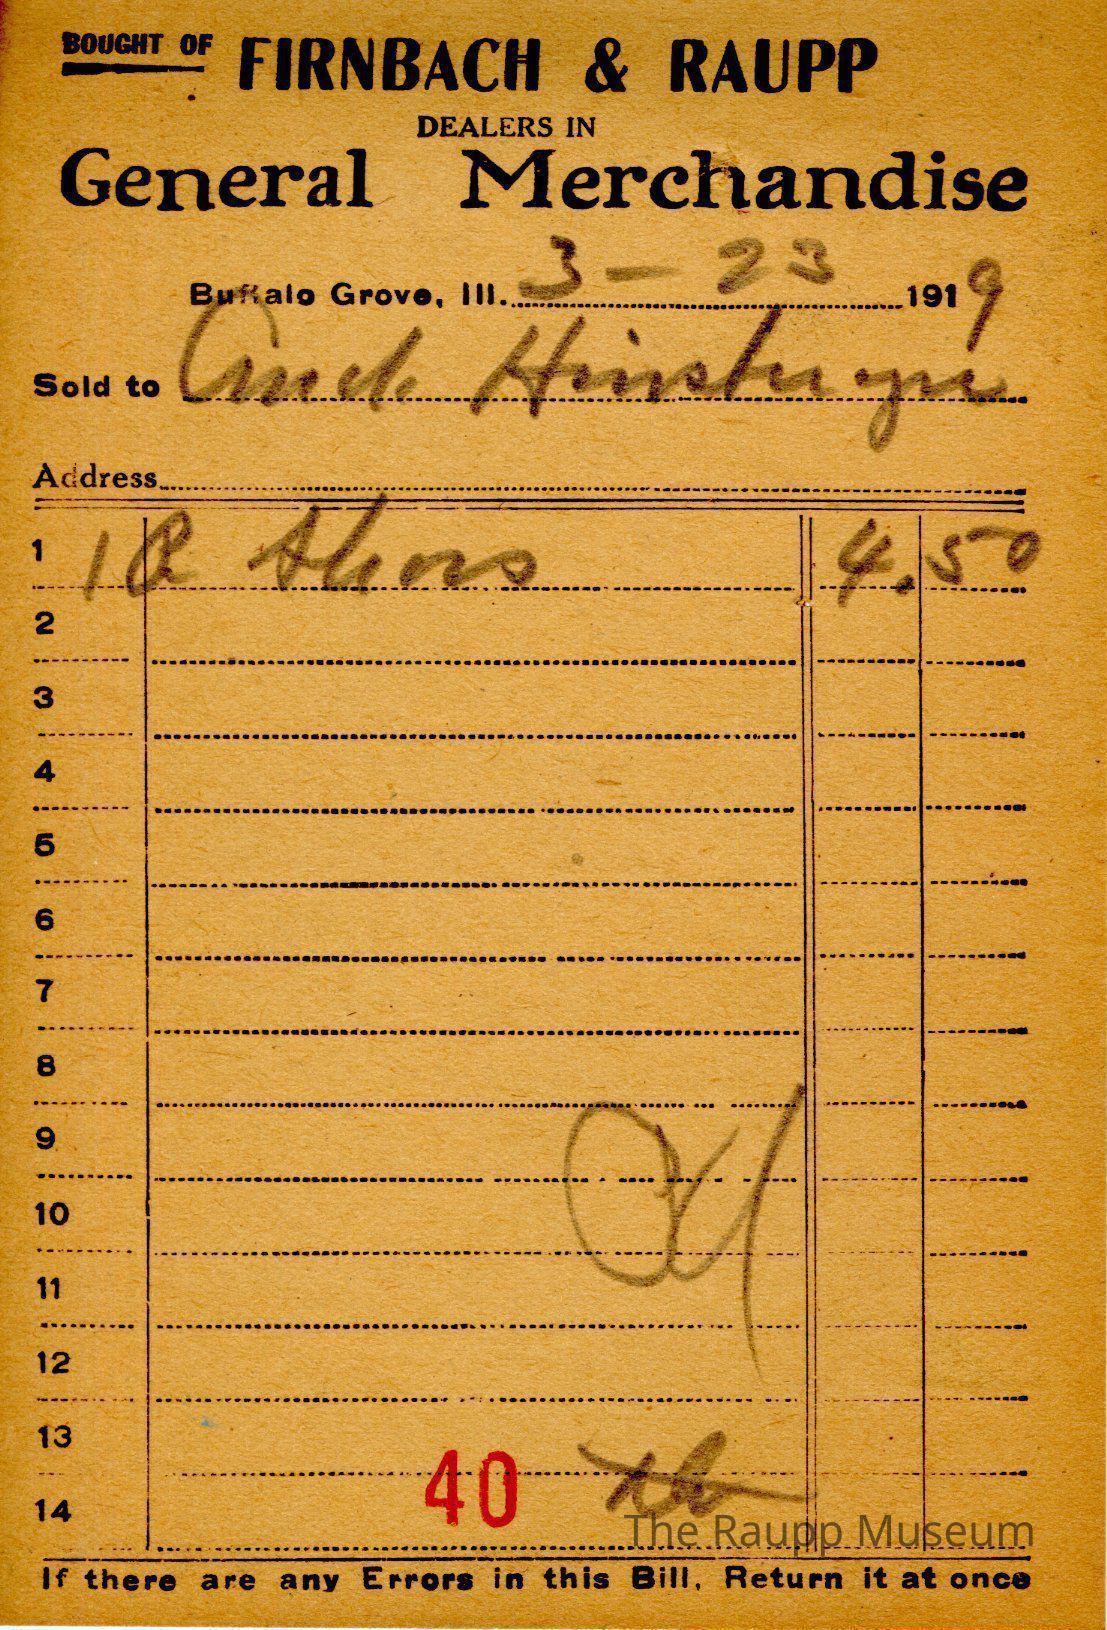 BOUGHT OF FIRNBACH & RAUPP
DEALERS IN
General Merchandise
Buffalo Grove, Ill. 3 - 23 1919
Sold to
Address
1 1 Shoes 4.50
2
3
4
5
6
7
8
9
10
11
12
13
40
14
The Raupp Museum
If there are any Errors in this Bill, Return it at once